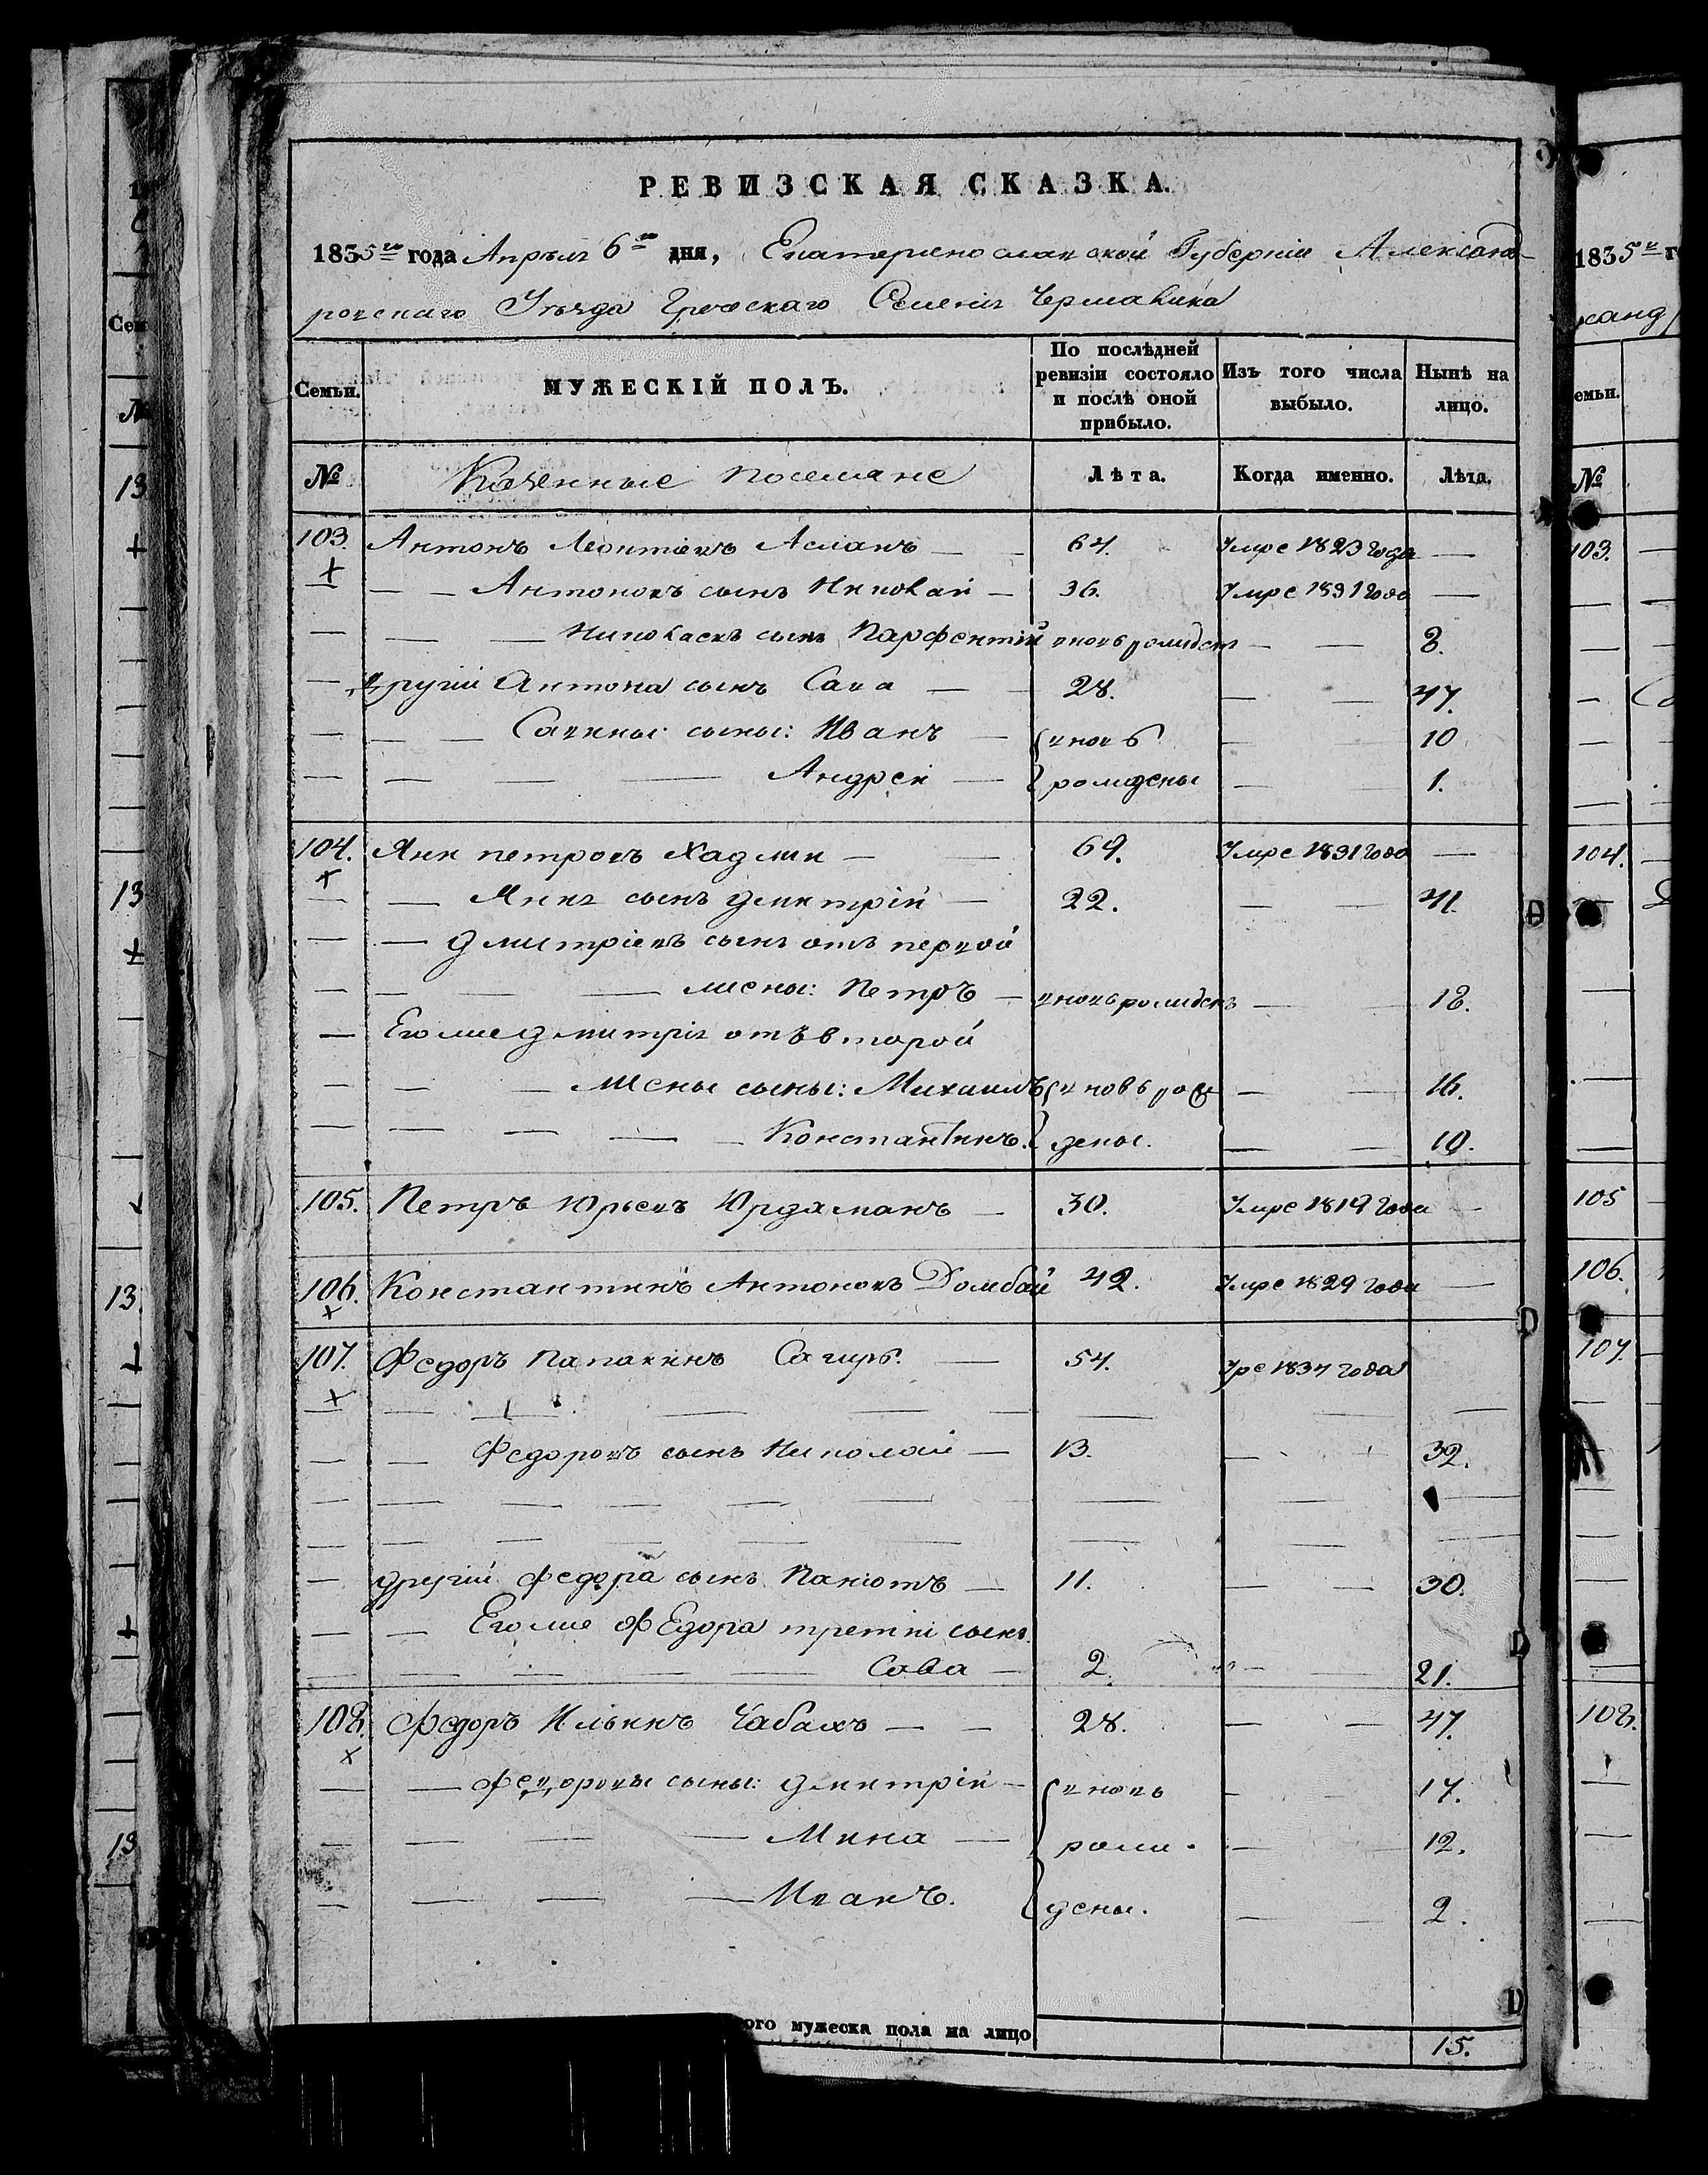 РЕВИЗСКАЯ СКАЗКА.
1835го года Апрѣля 6го дня, Екатеринославской Губерніи Александ-
ровскаго Уѣзда Греческаго Селенія Чермалика
Семьи. МУЖЕСКІЙ ПОЛЪ. По послѣдней ревизіи состояло и послѣ оной прибыло. Изъ того числа выбыло. Нынѣ на лицо.
№ Казенные поселяне Лѣта. Когда именно. Лѣта.
103. Антонъ Леонтіевъ Асланъ — 64. Умре 1823 года —
+ — — Антоновъ сынъ Николай — 36. Умре 1831 года —
— — — Николаевъ сынъ Парфентій вновь рожденъ — — 8.
— другій Антона сынъ Сава — 28. — — 47.
— — — Савины сыны: Иванъ — вновь — 10
— — — — Андрей — рождены — 1.
104. Яни петровъ Хаджи — — 64. Умре 1831 года —
+ — Янія сынъ дмитрій — 22. — — 41.
— — дмитріевъ сынъ отъ первой
— — — жены: Петръ — вновь рожденъ — 18.
— Его же дмитрія отъ второй
— — — жены сыны: Михаилъ вновь рож — — 16.
— — — — — Константинъ. дены. — — 10.
105. Петръ Юрьевъ Юрдаманъ — 30. Умре 1819 года —
106. Константинъ Антоновъ Домбай 42. Умре 1829 года —
+
107. Федоръ Папакинъ Сагиръ. — 54. Уре 1834 года
+
— — Федоровъ сынъ Николай — 13. — 32.
— другій федора сынъ Панютъ — 11. — — 30.
— — Его же ФЕдора третій сынъ
— — — — — Сава — 2. — 21.
108. Федоръ Ильинъ Чабахъ — — 28. — — 47.
+
— — федоровы сыны: дмитрій — вновь — 17.
— — — — Мина — рож- — 12.
— — — — Иванъ. дены. — — 2.
ого мужеска пола на лицо 15.
1835го г
ксанд
емьи.
№
103.
104.
105
106.
107.
108.
Сем
№
13
13
13.
13